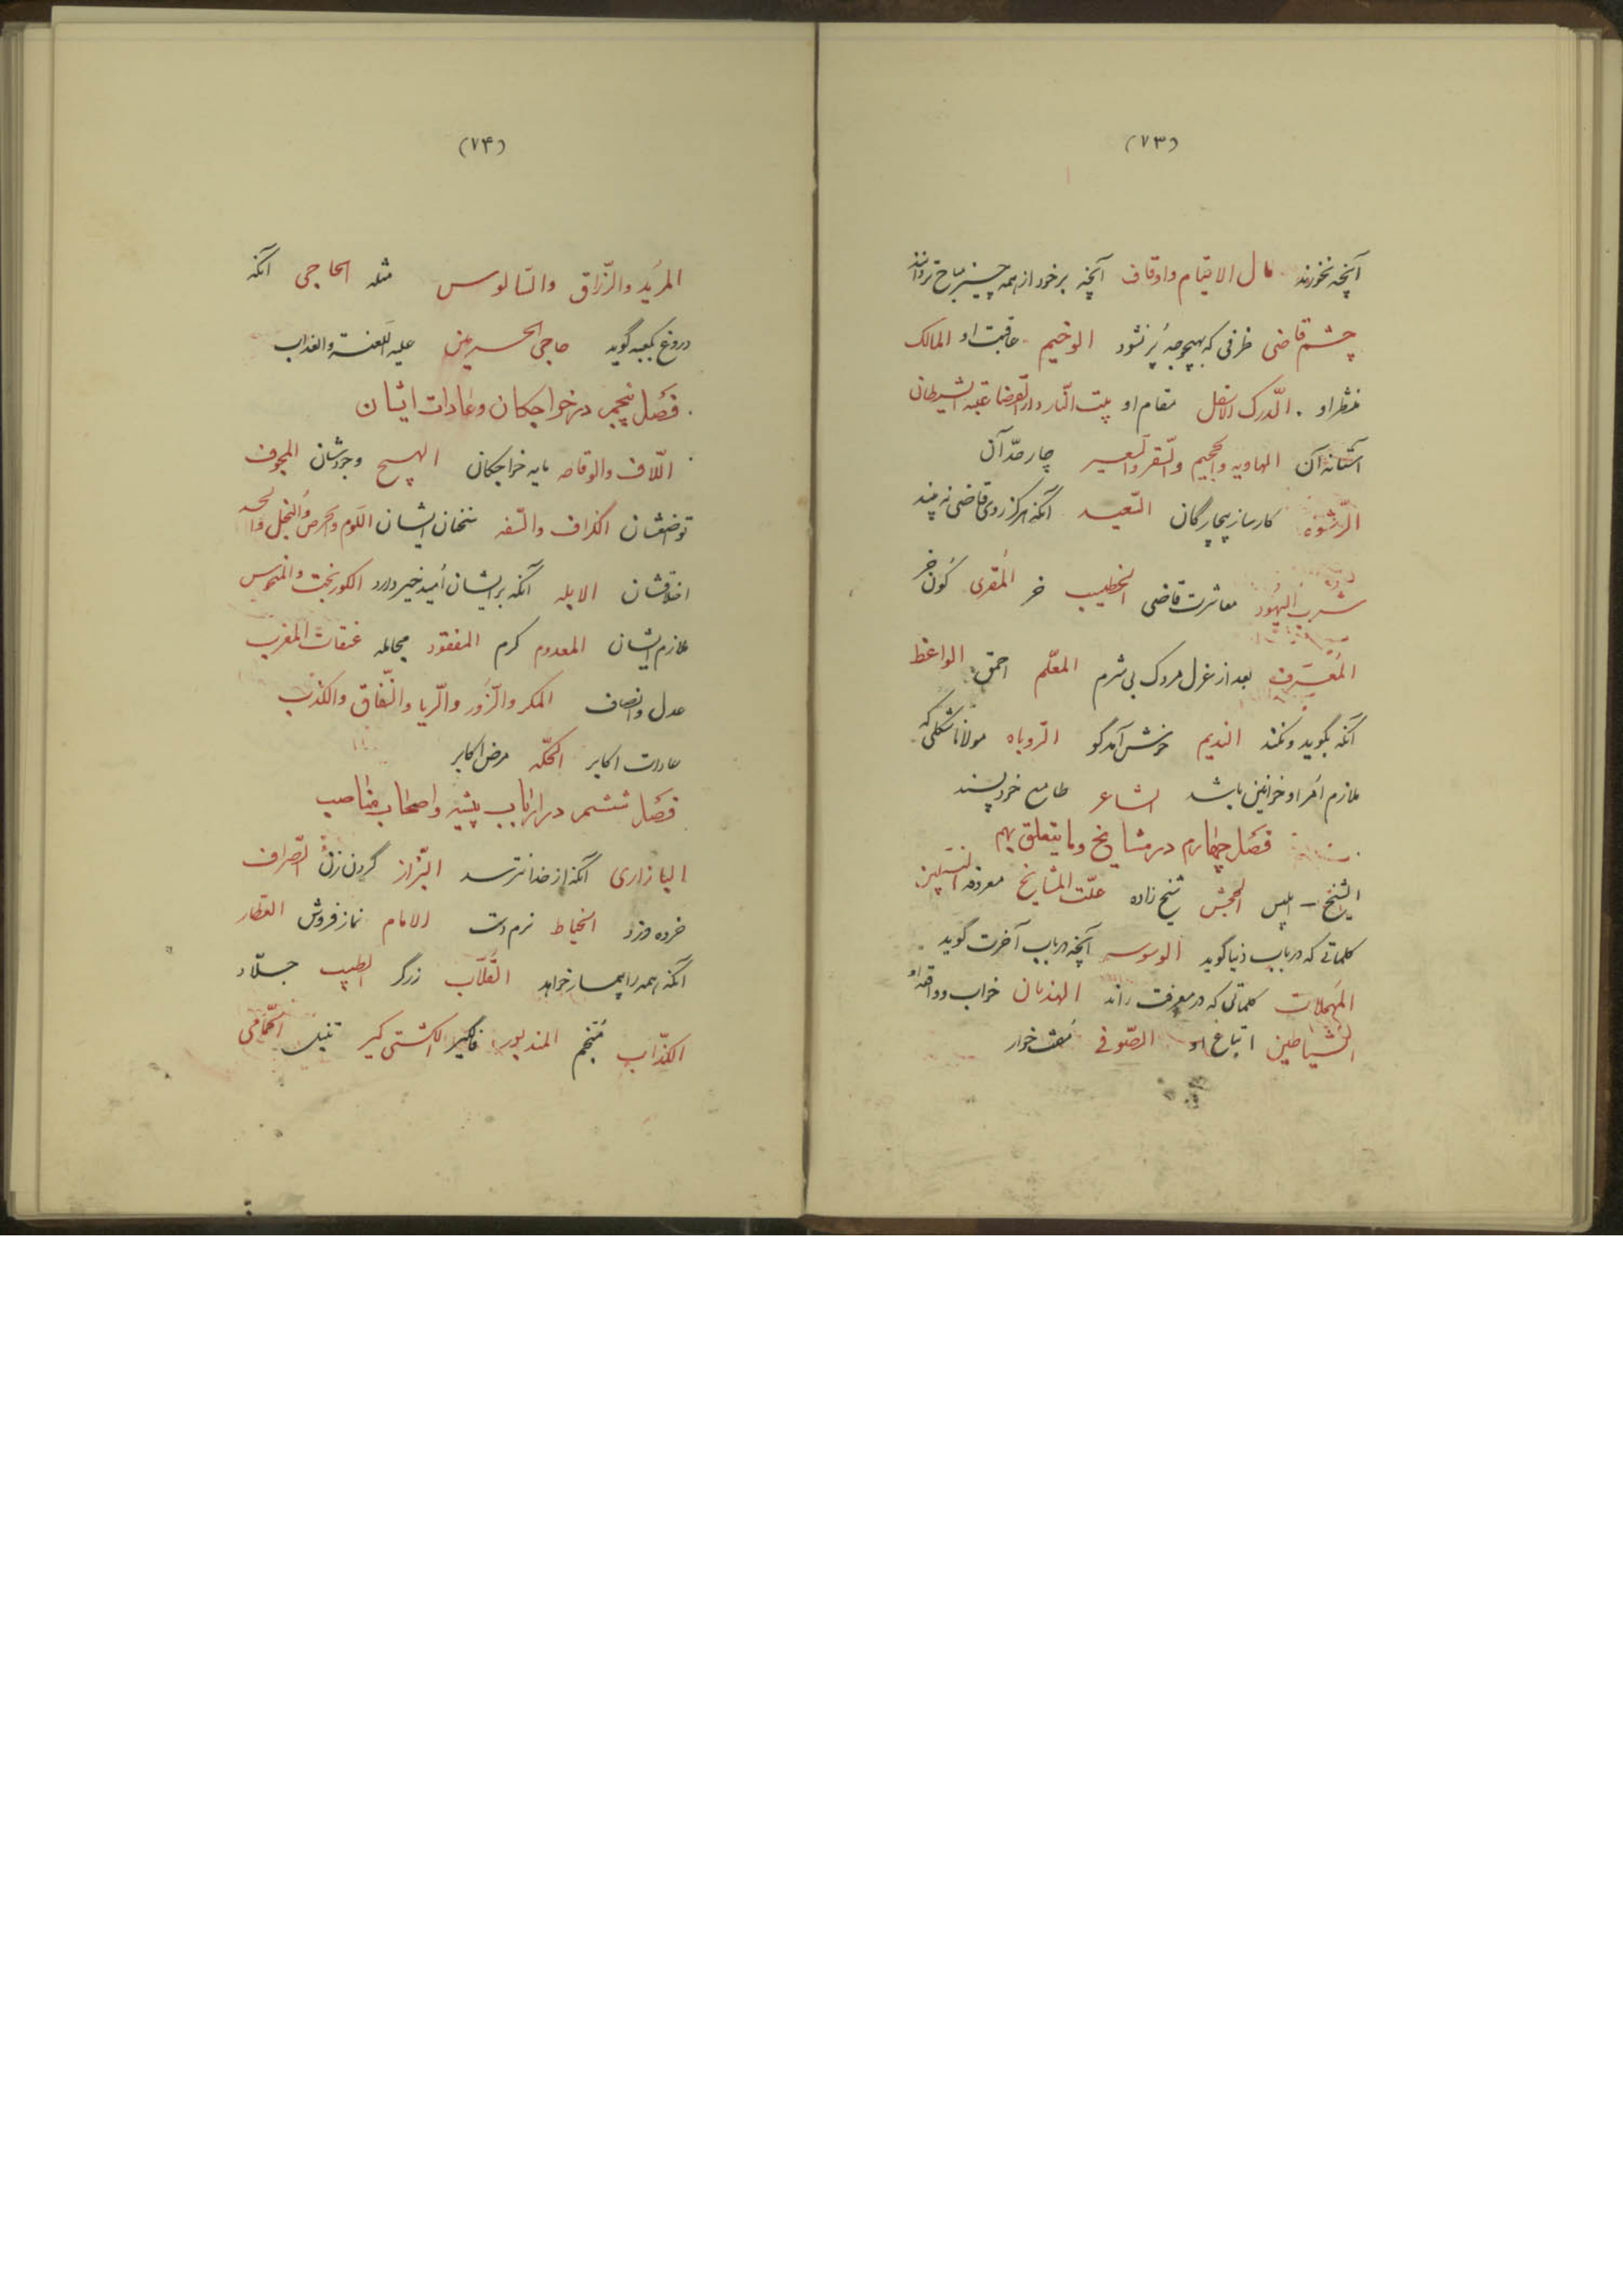 (۷۳)
آنچه نخورند مال الایتام واوقاف آنچه برخود از همه چیز مباح تر دانند
چشم قاضی ظرفی که بهیچوجه پُر نشود الوخیم عاقبت او المالک
منتظر او . الدّرک الاسفل مقام او بیت النّار دار القضا عتبه الشیطان
آستانه آن الهاویه والجحیم والسّقر والسّعیر چار حدّ آن
الرّشوه کارساز بیچارگان السّعید آنکه هرگز روی قاضی نه بیند
شرب الیهُود معاشرت قاضی الخطیب خر المُقری کُون خر
المُعَرف بعد از عزل مردک بی شرم المعلّم احمق الواعظ
آنکه بگوید و نکند الندیم خوش آمدگو الرّوباه مولانا شکلی که
ملازم اُمرا و خواتین باشد الشاعر طامع خود پسند
فصَل چهارم در مشایخ وما یتعلق بهم
الشیخ ـ ابلیس الجحش شیخ زاده علّت المشایخ معروف التلبیس
کلماتی که در باب دنیا گوید الوسوسه آنچه در باب آخرت گوید
المُهملات کلماتی که در معرفت راند الهذیان خواب و واقعه او
الشّیاطین اتباع او الصّوفی مُفت خوار
(۷۴)
المرُید والزّراق والسّالوس مثله الحاجی آنکه
دروغ بکعبه گوید حاجی الحرمین علیه اللّعنة والعذاب
فصَل پنجم در خواجکان وعادات ایشان
اللّاف والوقاحه مایه خواجکان الهیچ وجودشان المجوف
تواضعشان الگزاف والسّفه سخنان ایشان اللّوم والحرص والبخل والحسد
اخلاقشان الابله آنکه بر ایشان اُمید خیر دارد الکوربخت والمنحوس
ملازم ایشان المعدوم کرم المفقود مجامله عنقات المغرب
عدل وانصاف المکر والزّور والرّیا والنّفاق والکذب
عادات اکابر الحکّه مرض اکابر
فصَل ششم در ارباب پیشه واصحاب مناصب
البازاری آنکه از خدا نترسد البّزاز گردن زن الصّراف
خرده دزد الخیاط نرم دست الامام نماز فروش العطار
آنکه همه را بیمار خواهد القلّاب زرگر الطبیب جلّاد
الکذّاب مُنجّم المندبور فالگیر الکشتی گیر تنبل الحّمامی